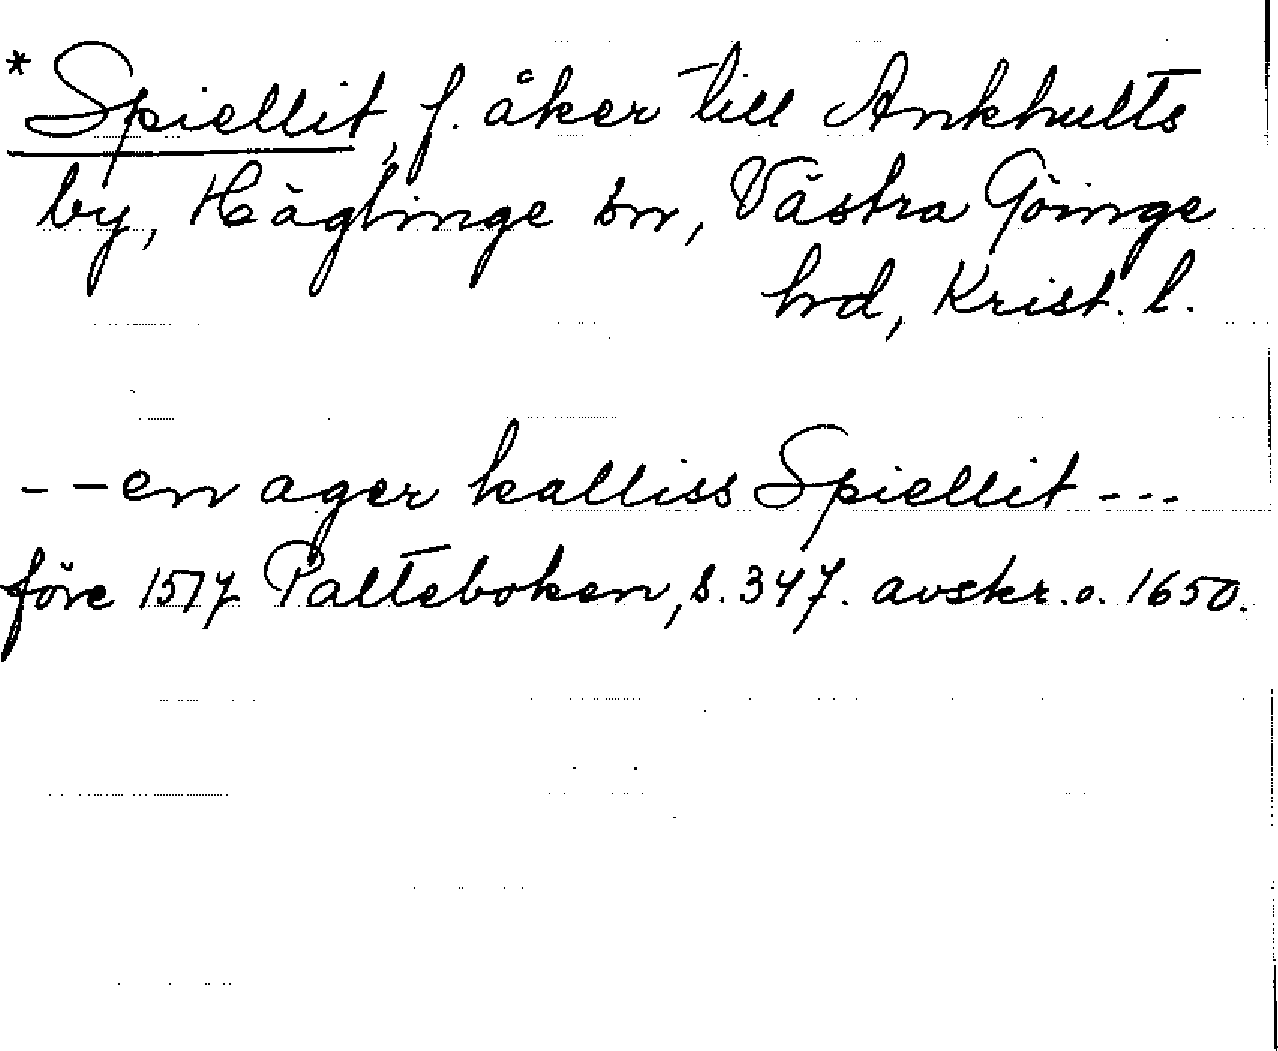 *Spiellit, f. åker till Ankhults
by, Häglinge sn, Västra Göinge
hrd, Krist. l.
- - en ager kalliss Spiellit - - -
före 1517 Palteboken, s. 347. avskr. o. 1650.